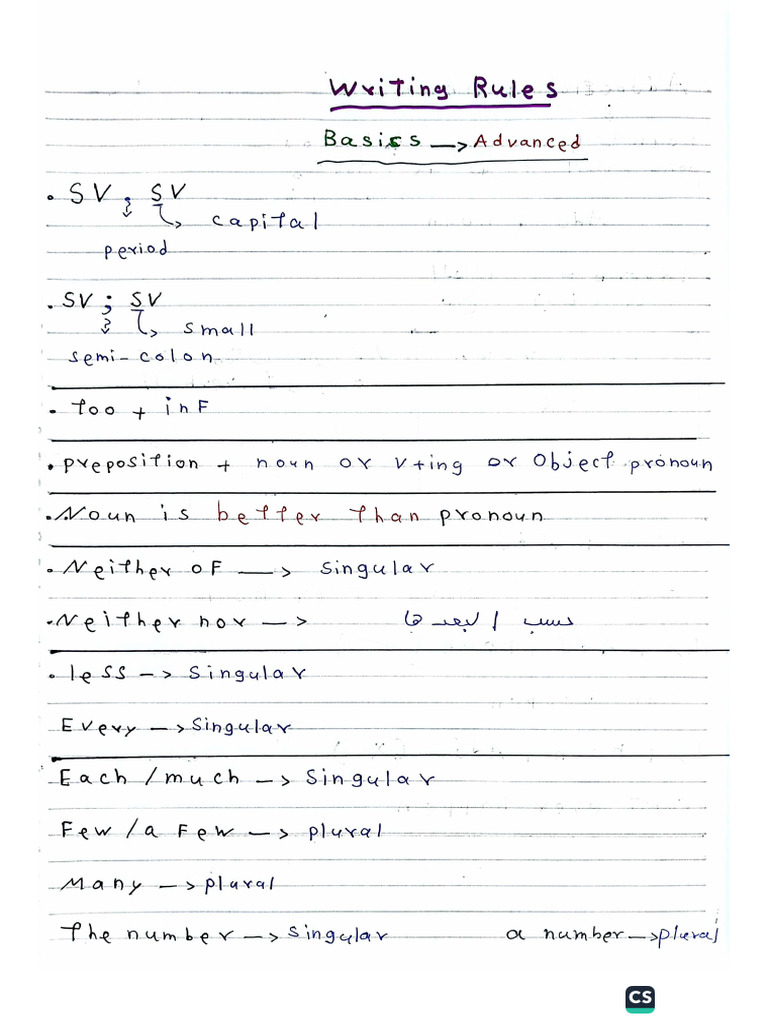 Writing Rules
Basics -> Advanced
. SV . SV
-> capital
period
. SV ; SV
-> small
semi-colon
. too + inF
. preposition + noun or V+ing or Object pronoun
. Noun is better than pronoun
. Neither oF -> singular
. Neither nor -> حسب البعدها
. less -> singular
Every -> singular
Each / much -> Singular
Few / a Few -> plural
Many -> plural
The number -> singular a number -> plural
CS